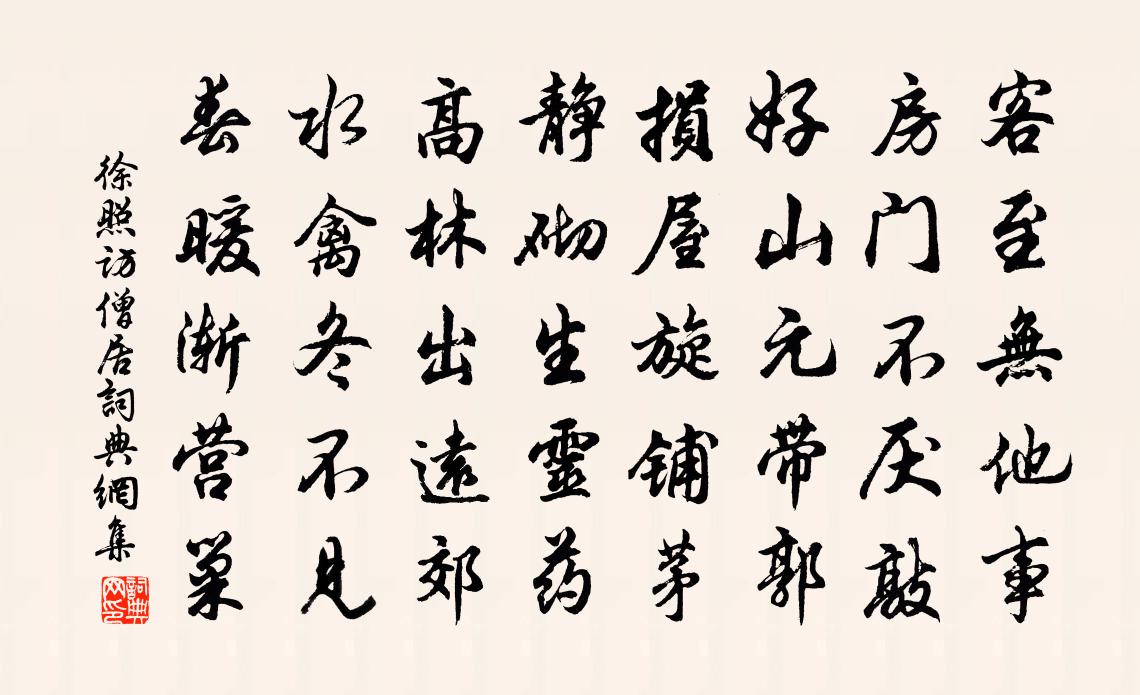 客至無他事
房门不厌敲
好山元带郭
損屋旋铺茅
静砌生靈药
高林出遠郊
水禽冬不見
春暖渐营巢
徐照访僧居詞典網集
詞典网印